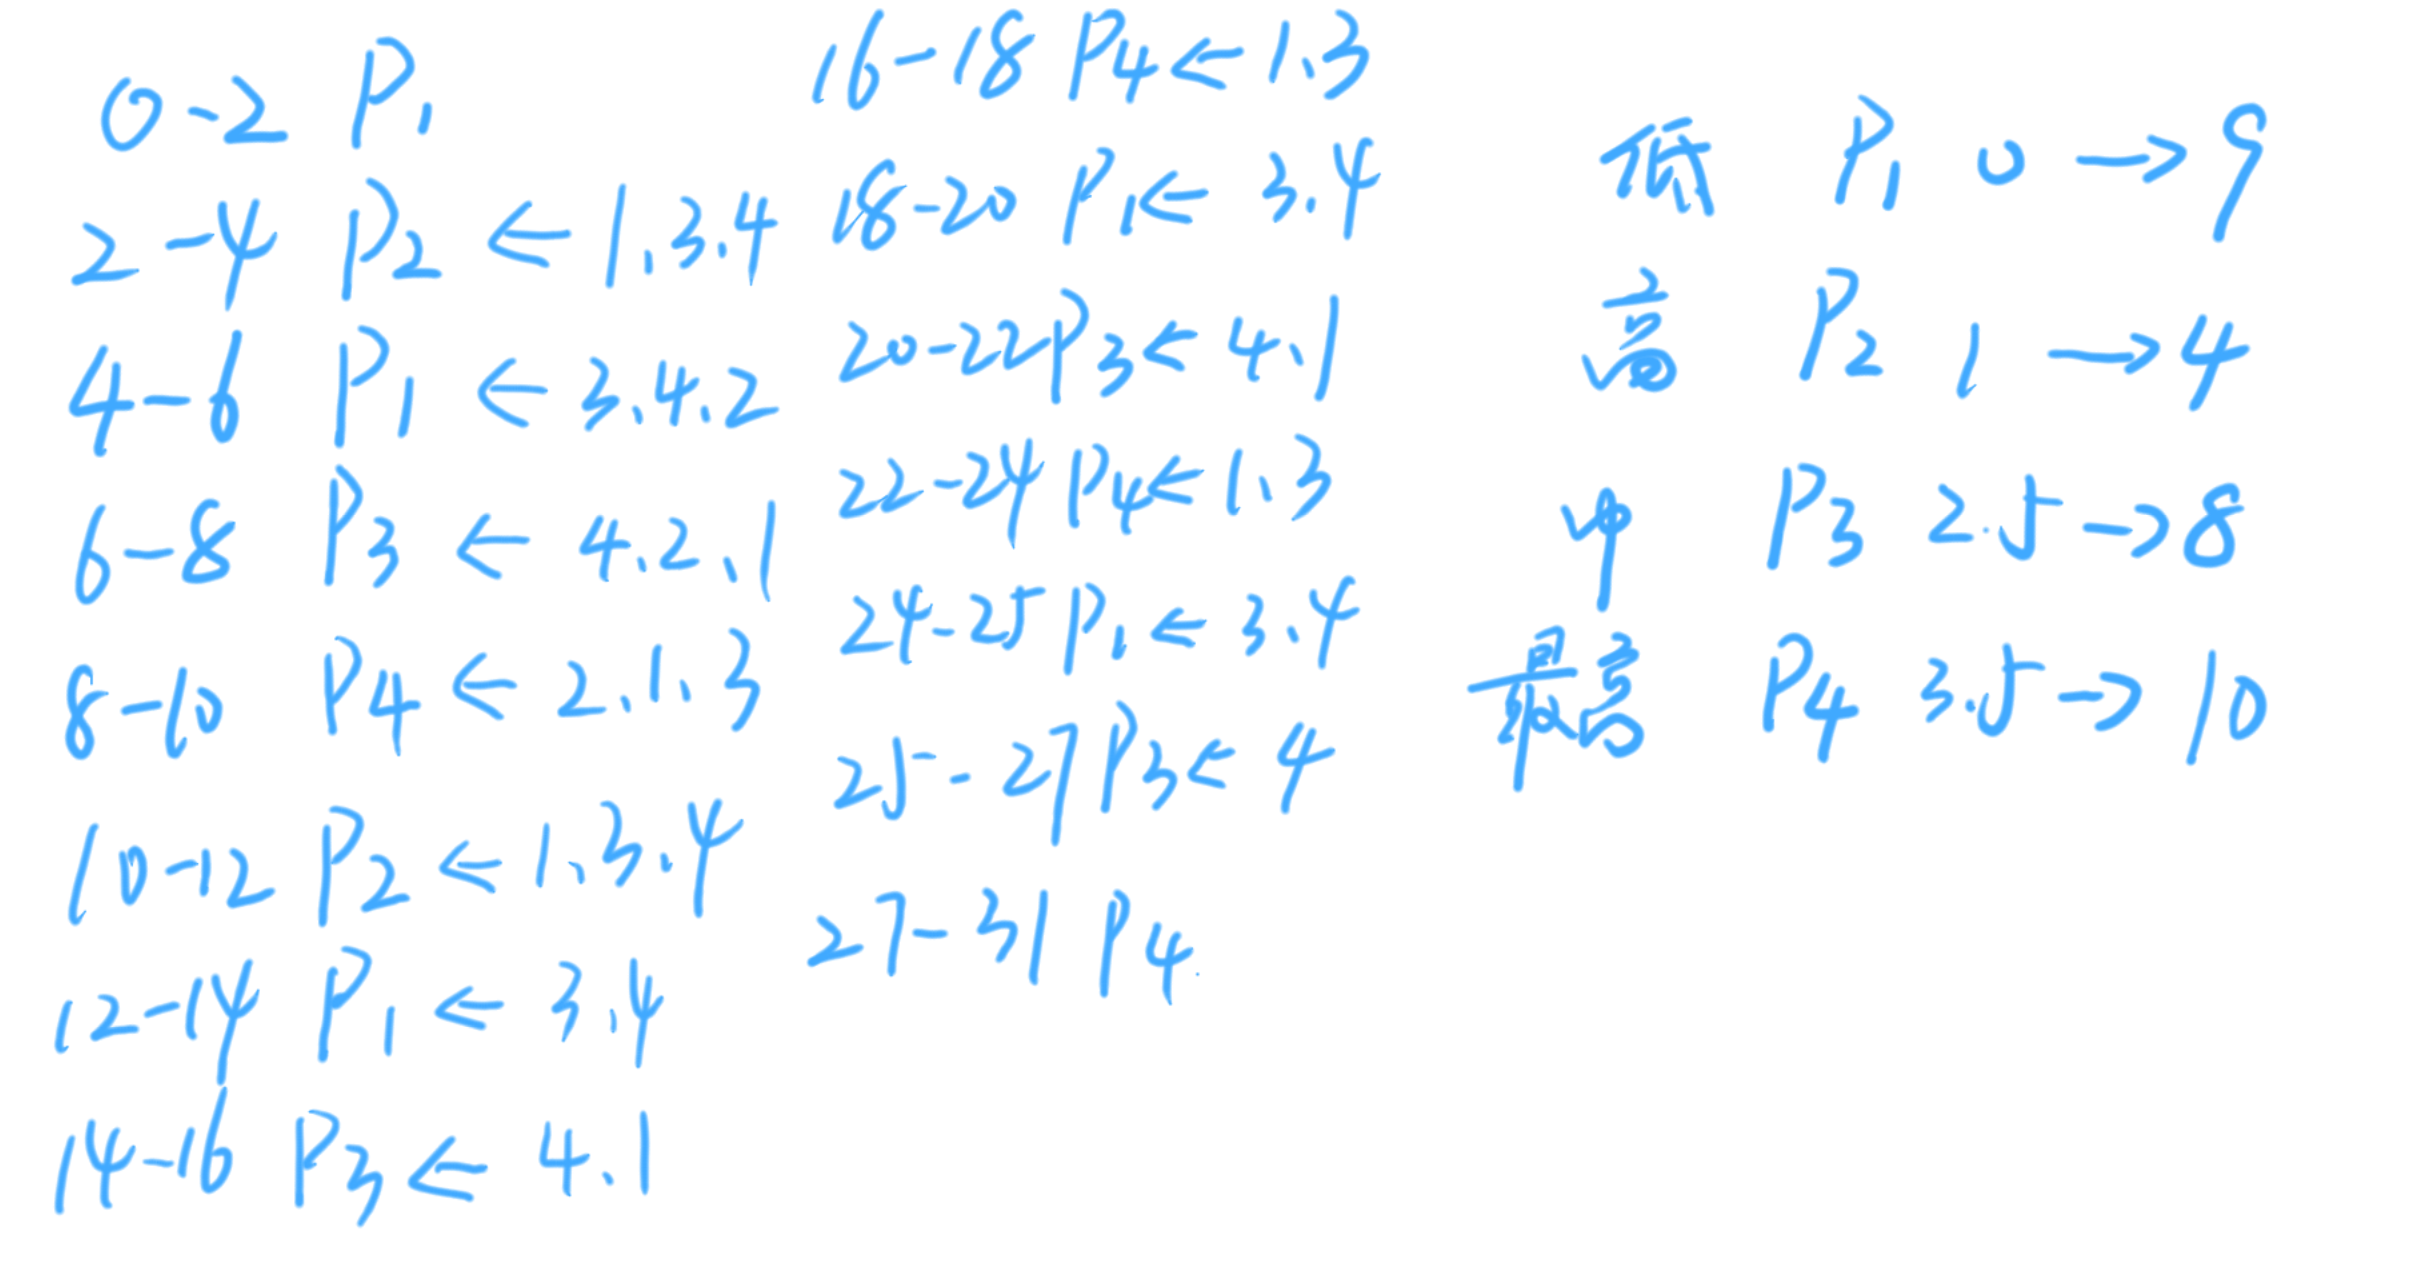 0-2 P1
2-4 P2 ← 1.3.4
4-6 P1 ← 3.4.2
6-8 P3 ← 4.2.1
8-10 P4 ← 2.1.3
10-12 P2 ← 1.3.4
12-14 P1 ← 3.4
14-16 P3 ← 4.1
16-18 P4 ← 1.3
18-20 P1 ← 3.4
20-22 P3 ← 4.1
22-24 P4 ← 1.3
24-25 P1 ← 3.4
25-27 P3 ← 4
27-31 P4.
低 P1 0 → 9
高 P2 1 → 4
中 P3 2.5 → 8
最高 P4 3.5 → 10